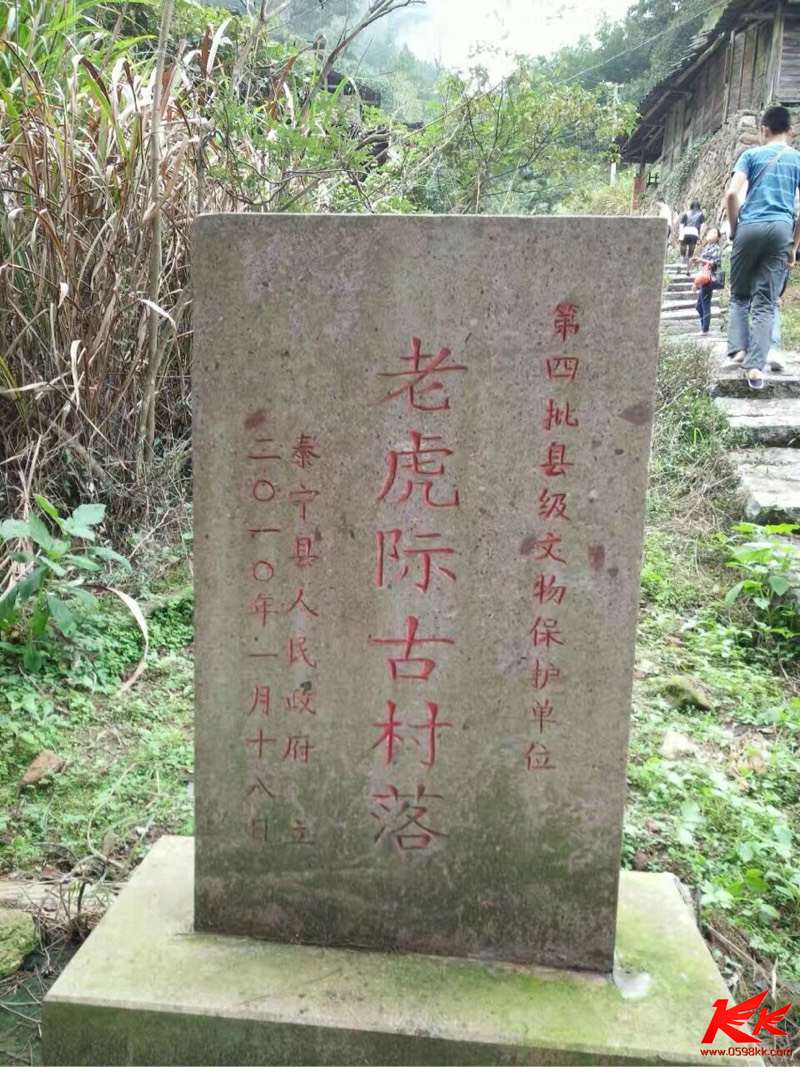 第四批县级文物保护单位
老虎际古村落
泰宁县人民政府 立
二〇一〇年一月十八日
KK
www.0598kk.com